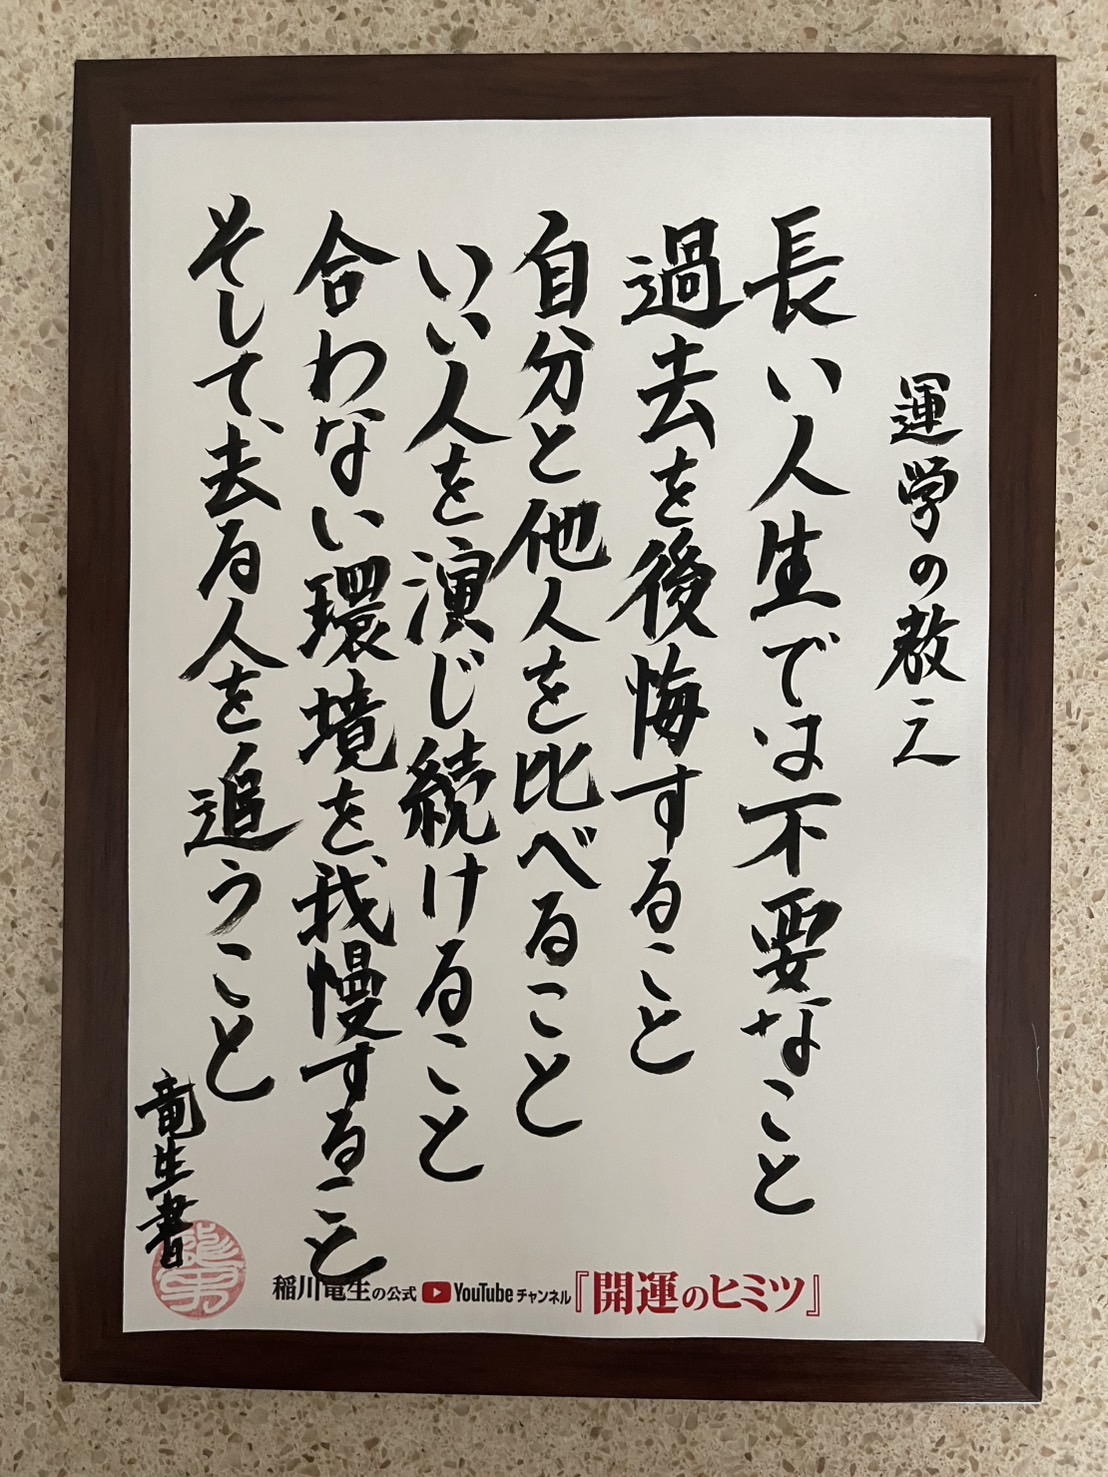 運学の教え
長い人生では不要なこと
過去を後悔すること
自分と他人を比べること
いい人を演じ続けること
合わない環境を我慢すること
そして、去る人を追うこと
竜生書
稲川竜生の公式 YouTube チャンネル『開運のヒミツ』